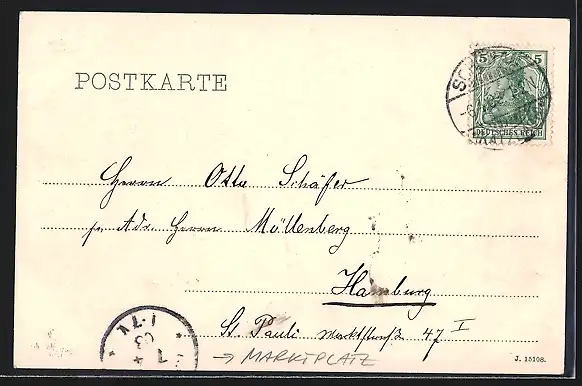 POSTKARTE
5 5
DEUTSCHES REICH
Herrn Otto Schäfer
pr. Adr. Herrn Möllenberg
Hamburg
St. Pauli Marktstraß 47 I
→ MARKTPLATZ
J. 15108.